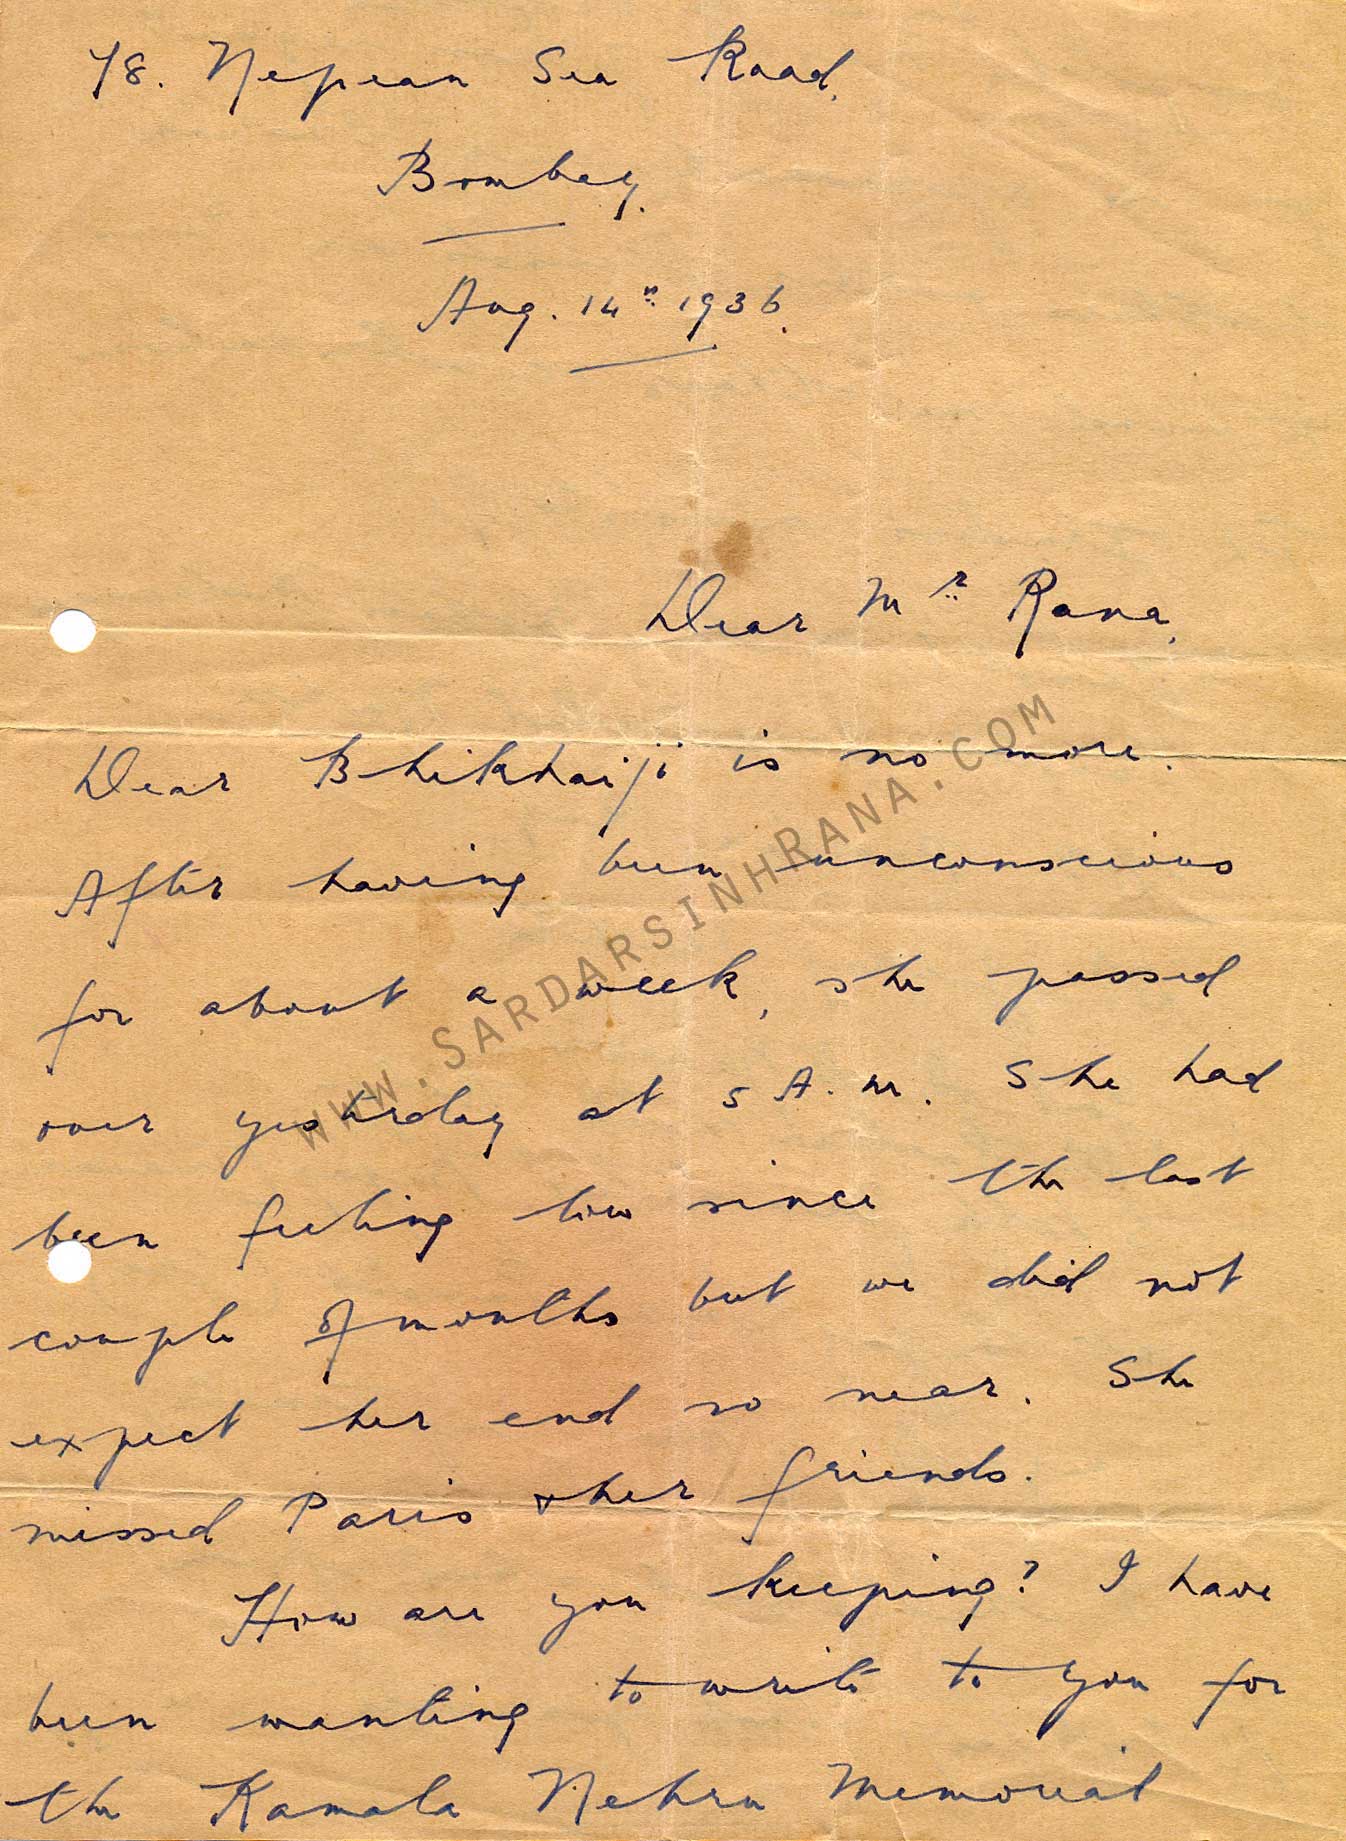 78. Nepean Sea Road.
Bombay.
Aug. 14th 1936.
Dear Mr Rana,
Dear Bhikhaiji is no more.
After having been unconscious
for about a week, she passed
over yesterday at 5 A.M. She had
been feeling low since the last
couple of months but we did not
expect her end so near. She
missed Paris & her friends.
How are you keeping? I have
been wanting to write to you for
the Kamala Nehru Memorial
WWW.SARDARSINHRANA.COM